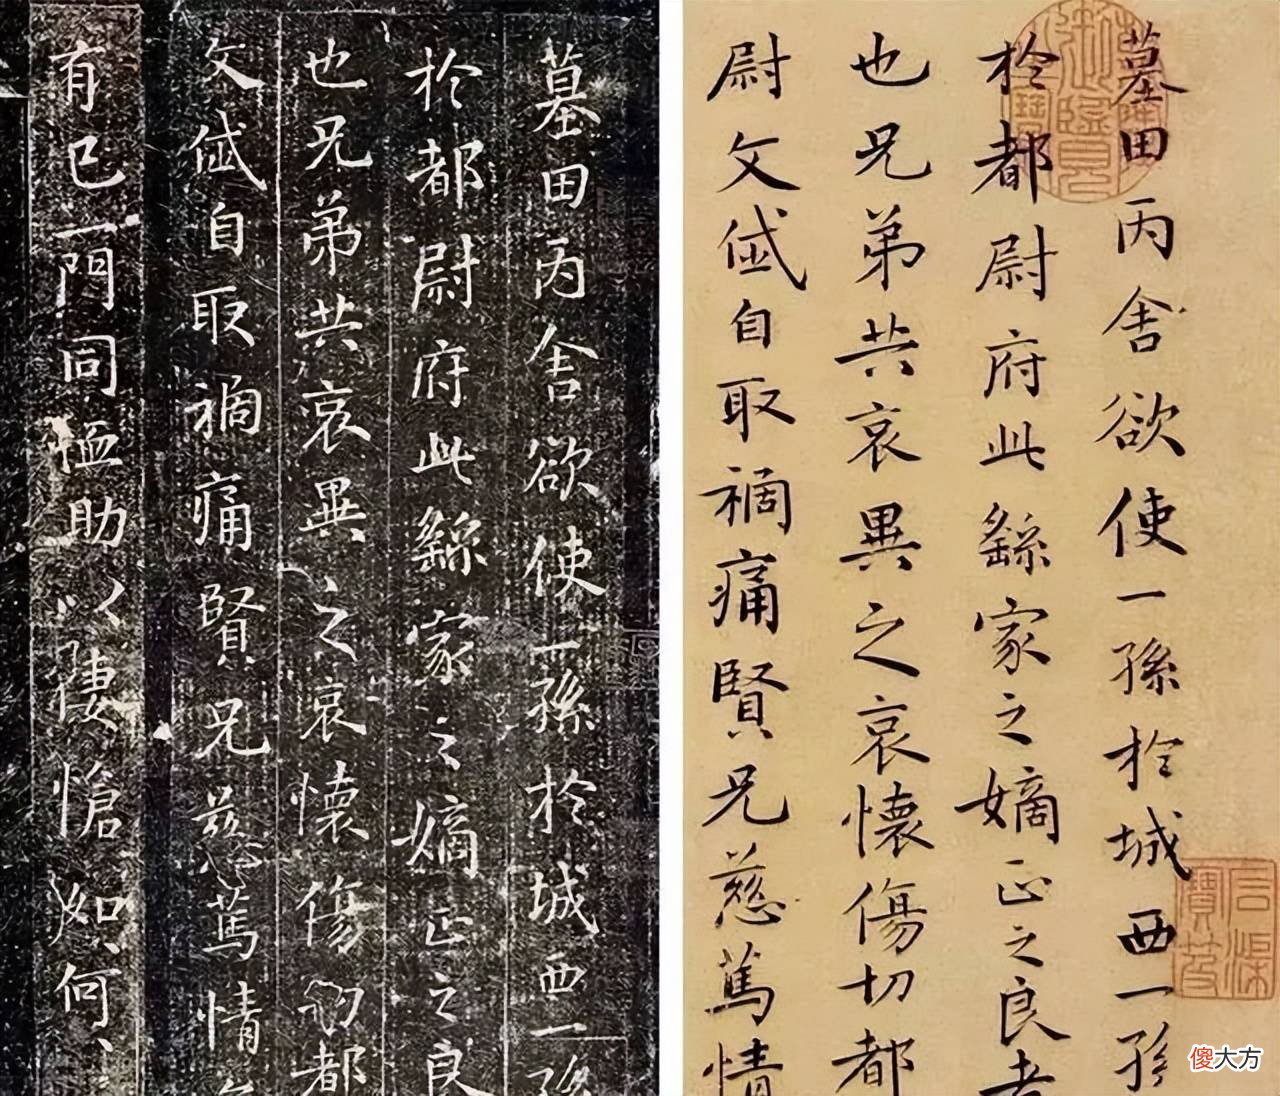 墓田丙舍欲使一孫於城西一孫
於都尉府此繇家之嫡正之良
也兄弟共哀異之哀懷傷切都
文岱自取禍痛賢兄慈篤情
有已一門同恤助以悽愴如何
墓田丙舍欲使一孫於城西一孫
於都尉府此繇家之嫡正之良者
也兄弟共哀異之哀懷傷切都
尉文岱自取禍痛賢兄慈篤情
石渠
寶笈
傻大方